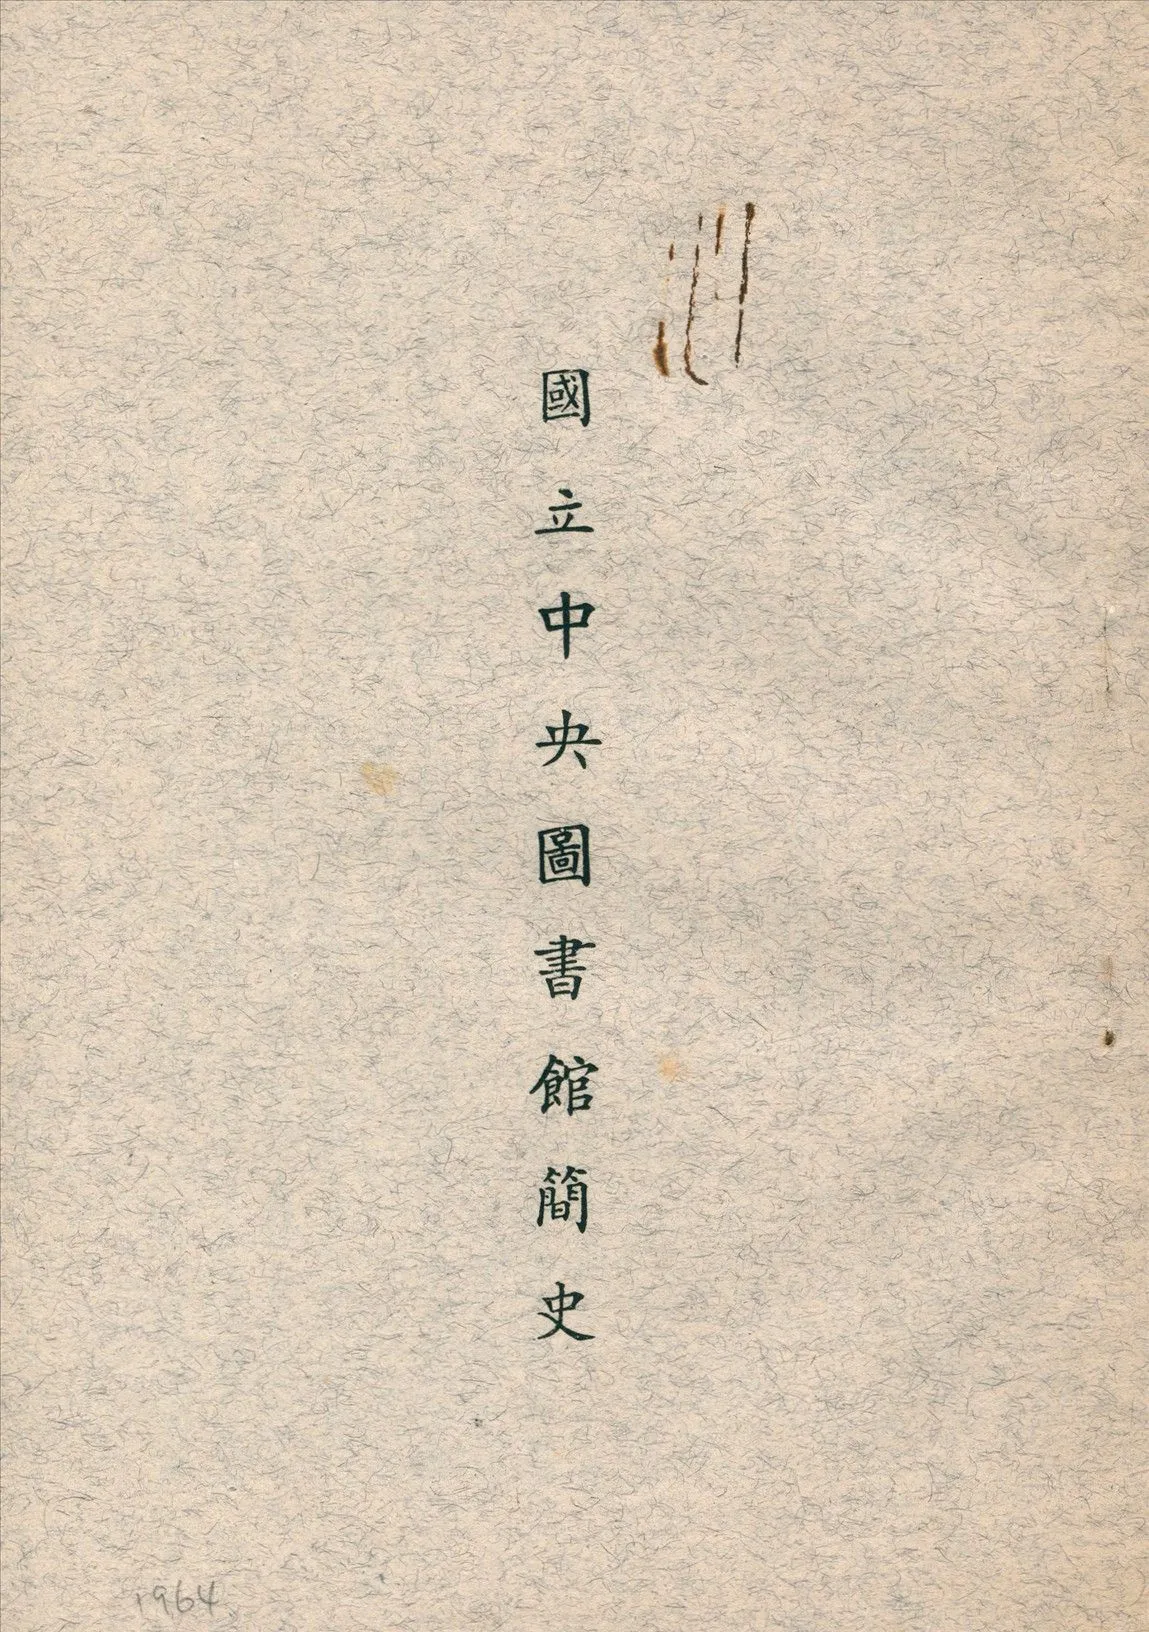 國立中央圖書館簡史
1964